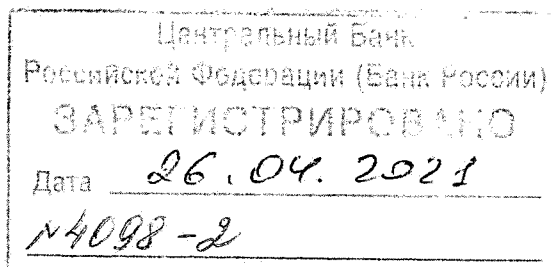 Центральный Банк
Российской Федерации (Банк России)
ЗАРЕГИСТРИРОВАНО
Дата 26.04.2021
№4098-2